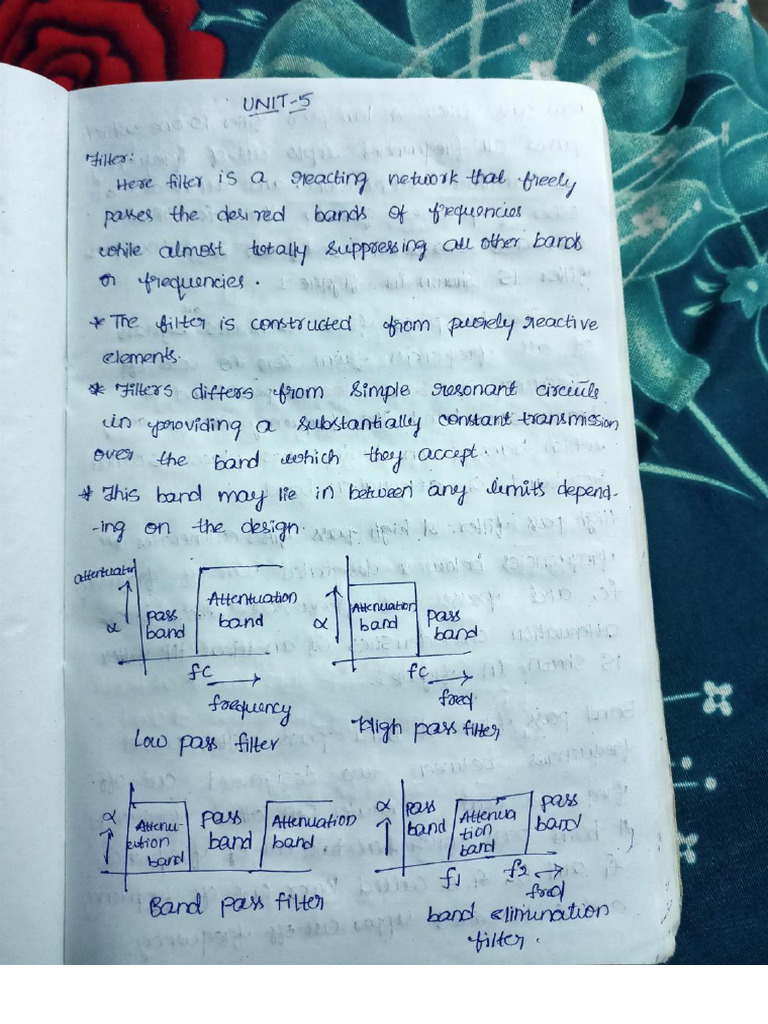 UNIT-5
Filter:
Here filter is a reacting network that freely
passes the desired bands of frequencies
while almost totally suppressing all other bands
or frequencies.
* The filter is constructed from purely reactive
elements.
* Filters differs from simple resonant circuits
in providing a substantially constant transmission
over the band which they accept.
* This band may lie in between any limits depend-
-ing on the design.
attentuation
α
pass
band
Attentuation
band
fc
frequency
Low pass filter
α
Attenuation
band
pass
band
fc
freq.
High pass filter,
α
Attenu-
ation
band
pass
band
Attenuation
band.
Band pass filter
α
pass
band
Attenua
tion
band
pass
band
f1
f2
freq
band elimination
filter.